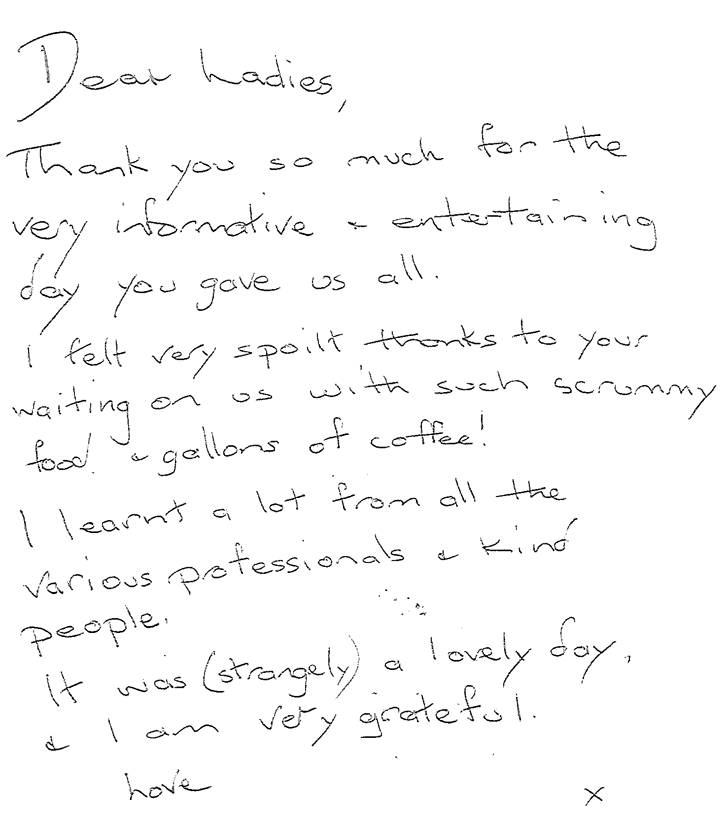 Dear Ladies,
Thank you so much for the
very informative & entertaining
day you gave us all.
I felt very spoilt thanks to your
waiting on us with such scrummy
food & gallons of coffee!
I learnt a lot from all the
various professionals & kind
people.
It was (strangely) a lovely day,
& I am very grateful.
Love x